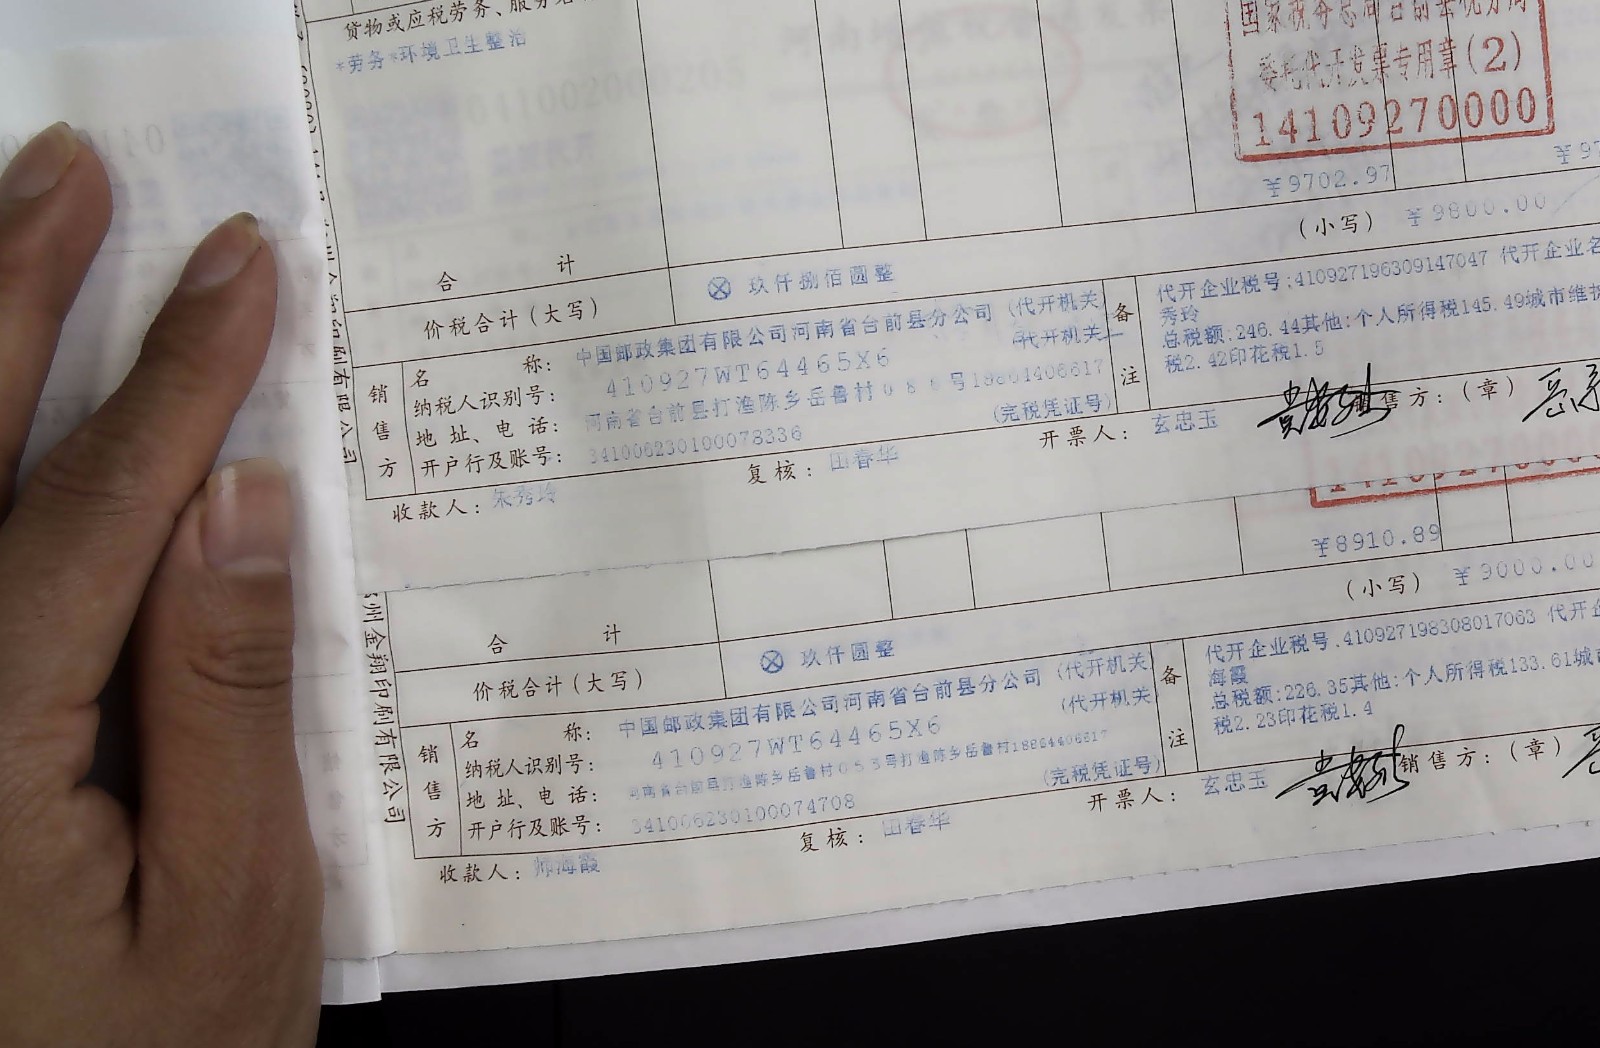 货物或应税劳务、服务名
*劳务*环境卫生整治
委托代开发票专用章(2)
14109270000
¥9702.97
¥97
合 计
价税合计(大写)
⊗ 玖仟捌佰圆整
(小写) ¥9800.00
销售方
名 称: 中国邮政集团有限公司河南省台前县分公司 (代开机关
纳税人识别号: 410927WT64465X6 (代开机关
地 址、电 话: 河南省台前县打渔陈乡岳鲁村
开户行及账号: 341006230100078336 (完税凭证号)
备注
代开企业税号:410927196309147047 代开企业名
秀玲
总税额:246.44其他:个人所得税145.49城市维护
税2.42印花税1.5
收款人: 朱秀玲
复核: 田春华
开票人: 玄忠玉
销售方:(章)
¥8910.89
合 计
价税合计(大写)
⊗ 玖仟圆整
(小写) ¥9000.00
销售方
名 称: 中国邮政集团有限公司河南省台前县分公司 (代开机关
纳税人识别号: 410927WT64465X6 (代开机关
地 址、电 话: 河南省台前县打渔陈乡岳鲁村053号打渔陈乡岳鲁村18864406617
开户行及账号: 341006230100074708 (完税凭证号)
备注
代开企业税号:410927198308017063 代开企
海霞
总税额:226.35其他:个人所得税133.61城
税2.23印花税1.4
收款人: 师海霞
复核: 田春华
开票人: 玄忠玉
销售方:(章)
州金翔印刷有限公司